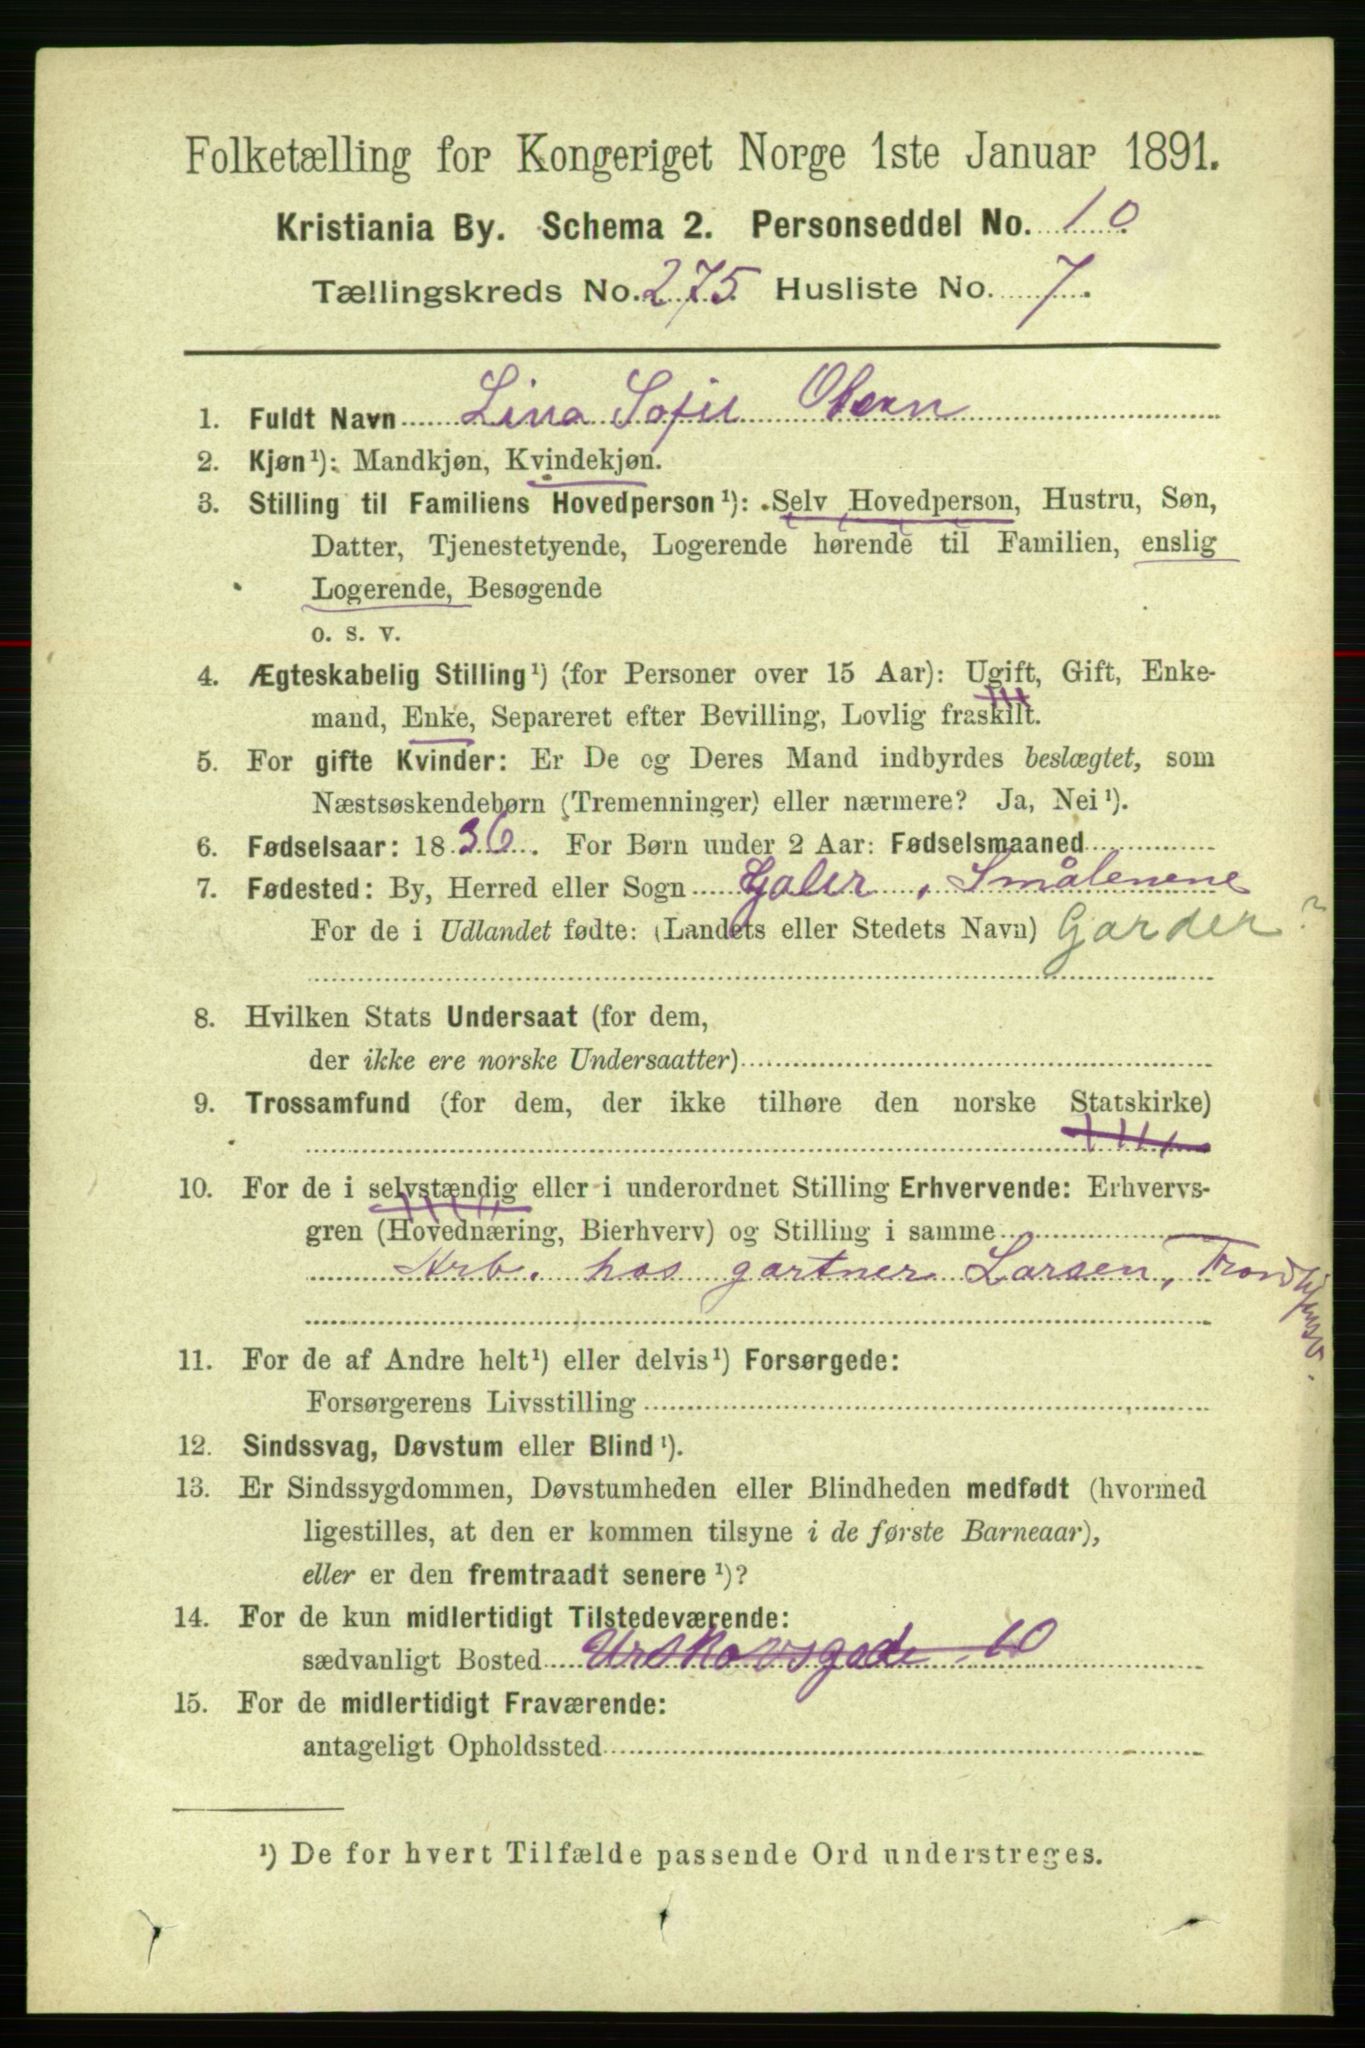 Folketælling for Kongeriget Norge 1ste Januar 1891.
Kristiania By. Schema 2. Personseddel No. 10
Tællingskreds No. 275 Husliste No. 7.
1. Fuldt Navn Lina Sofie Olsen
2. Kjøn¹): Mandkjøn, Kvindekjøn.
3. Stilling til Familiens Hovedperson¹): Selv Hovedperson, Hustru, Søn,
Datter, Tjenestetyende, Logerende hørende til Familien, enslig
Logerende, Besøgende
o. s. v.
4. Ægteskabelig Stilling¹) (for Personer over 15 Aar): Ugift, Gift, Enke-
mand, Enke, Separeret efter Bevilling, Lovlig fraskilt.
5. For gifte Kvinder: Er De og Deres Mand indbyrdes beslægtet, som
Næstsøskendebørn (Tremenninger) eller nærmere? Ja, Nei¹).
6. Fødselsaar: 1836. For Børn under 2 Aar: Fødselsmaaned
7. Fødested: By, Herred eller Sogn , Smålenene
For de i Udlandet fødte: (Landets eller Stedets Navn) Garder ?
8. Hvilken Stats Undersaat (for dem,
der ikke ere norske Undersaatter)
9. Trossamfund (for dem, der ikke tilhøre den norske Statskirke)
10. For de i selvstændig eller i underordnet Stilling Erhvervende: Erhvervs-
gren (Hovednæring, Bierhverv) og Stilling i samme
Arb. hos gartner Larsen, Trondhjemsv.
11. For de af Andre helt¹) eller delvis¹) Forsørgede:
Forsørgerens Livsstilling
12. Sindssvag, Døvstum eller Blind¹).
13. Er Sindssygdommen, Døvstumheden eller Blindheden medfødt (hvormed
ligestilles, at den er kommen tilsyne i de første Barneaar),
eller er den fremtraadt senere¹)?
14. For de kun midlertidigt Tilstedeværende:
sædvanligt Bosted Urskovsgade 10
15. For de midlertidigt Fraværende:
antageligt Opholdssted
¹) De for hvert Tilfælde passende Ord understreges.